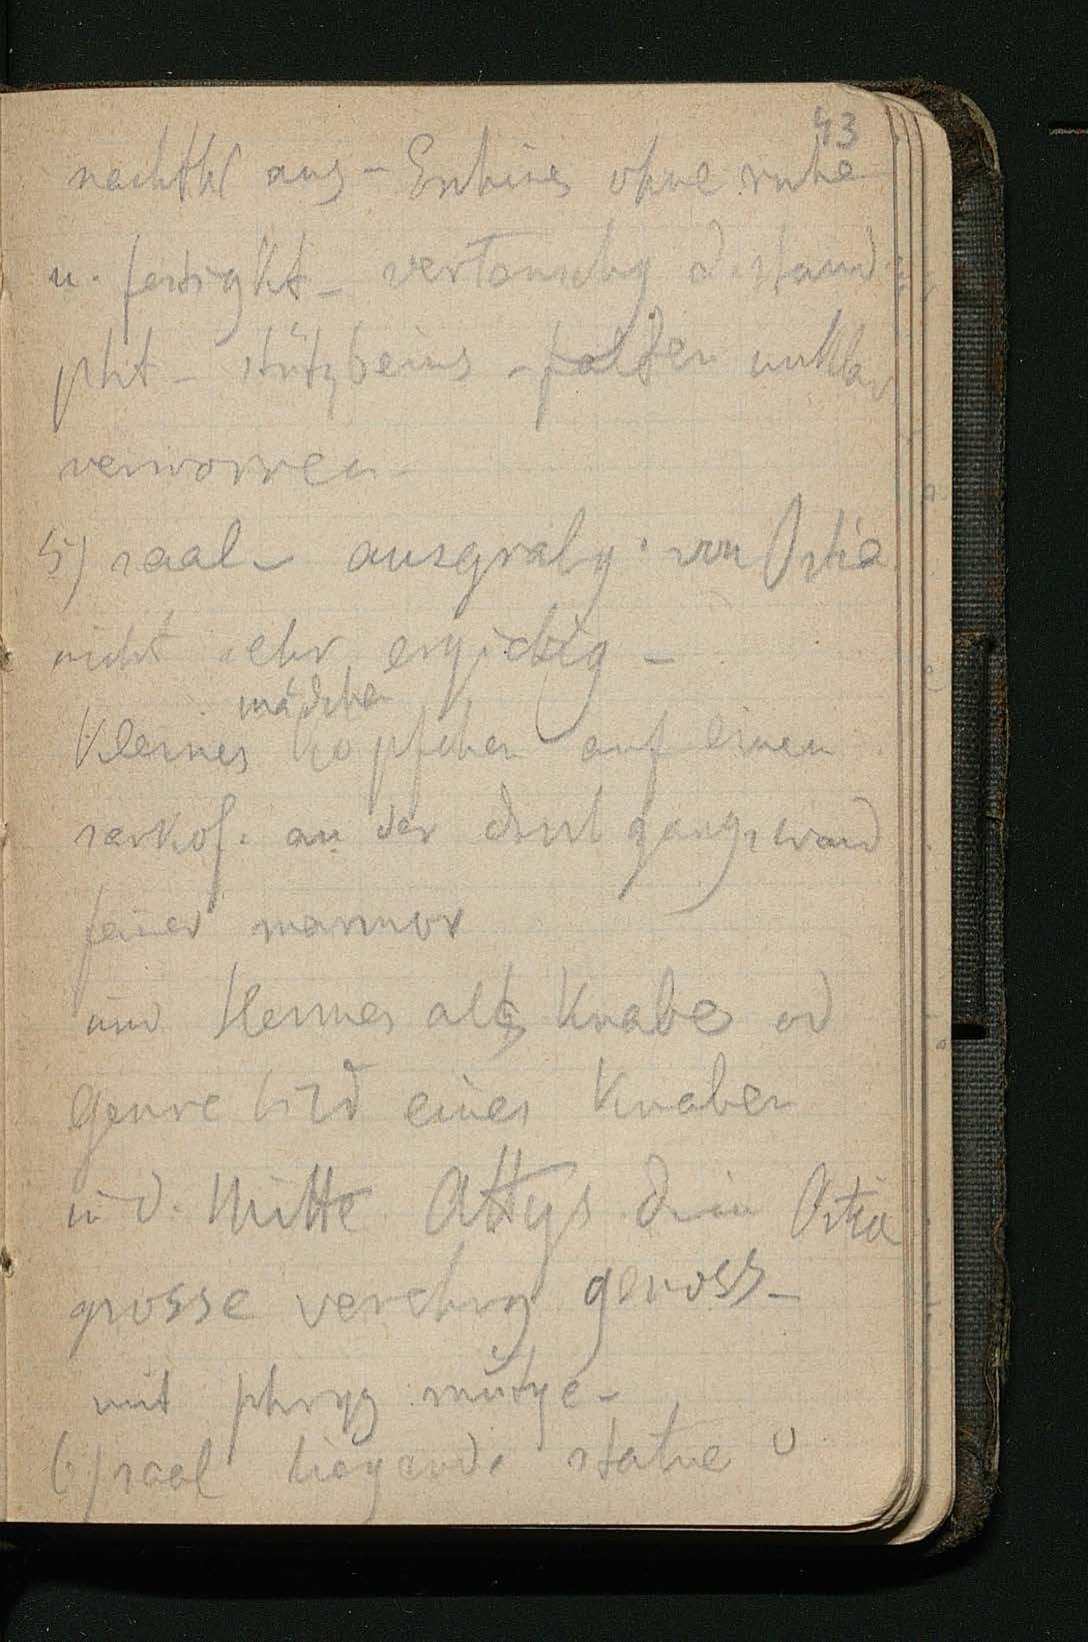 43
nachthl aus – Eschines ohne ruhe
u. fertigkt – vertauschg d. stand
pkt – stützbeins – falten unklar
verworren –
5) saal – ausgrabg. von Ostia
nicht sehr ergiebig –
mädchen
Kleines köpfchen auf einem
sarkof. an der durchgangswand
feiner marmor
und Hermes als Knabe od
Genre bild eines Knaben
in d. Mitte Attys d. in Ostia
grosse verehrg genoss –
mit phryg mütze –
6) saal liegende statue